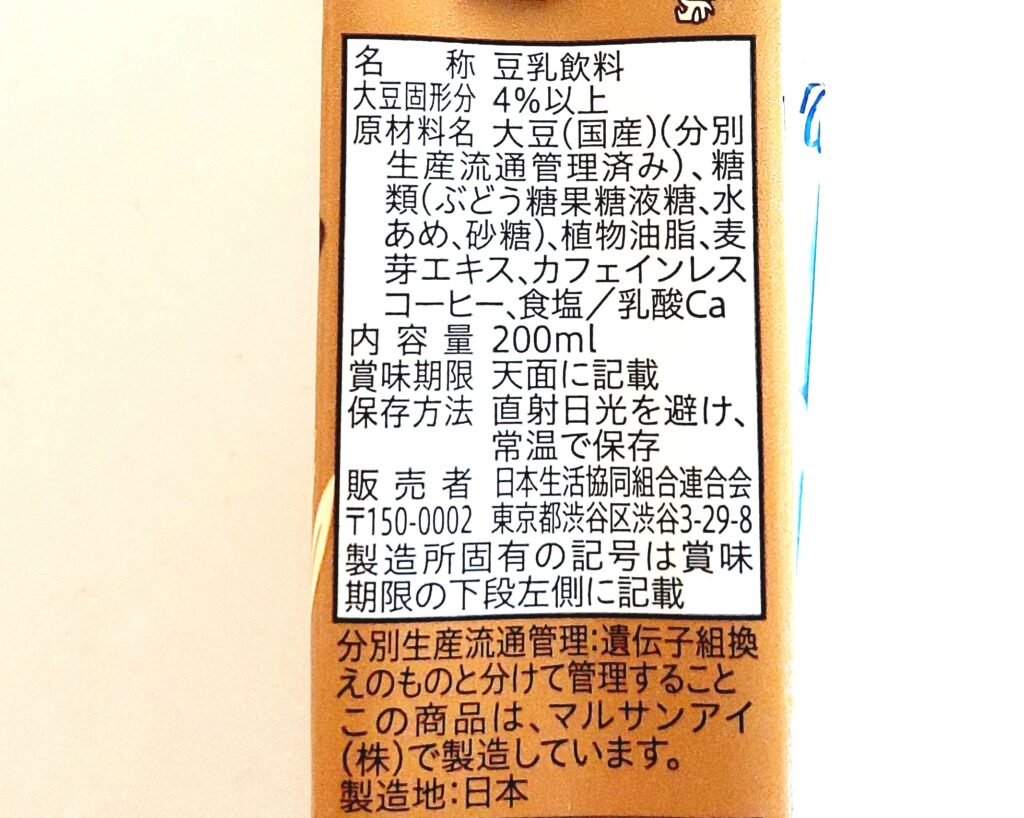 名称 豆乳飲料
大豆固形分 4%以上
原材料名 大豆(国産)(分別
生産流通管理済み)、糖
類(ぶどう糖果糖液糖、水
あめ、砂糖)、植物油脂、麦
芽エキス、カフェインレス
コーヒー、食塩/乳酸Ca
内容量 200ml
賞味期限 天面に記載
保存方法 直射日光を避け、
常温で保存
販売者 日本生活協同組合連合会
〒150-0002 東京都渋谷区渋谷3-29-8
製造所固有の記号は賞味
期限の下段左側に記載
分別生産流通管理:遺伝子組換
えのものと分けて管理すること
この商品は、マルサンアイ
(株)で製造しています。
製造地:日本